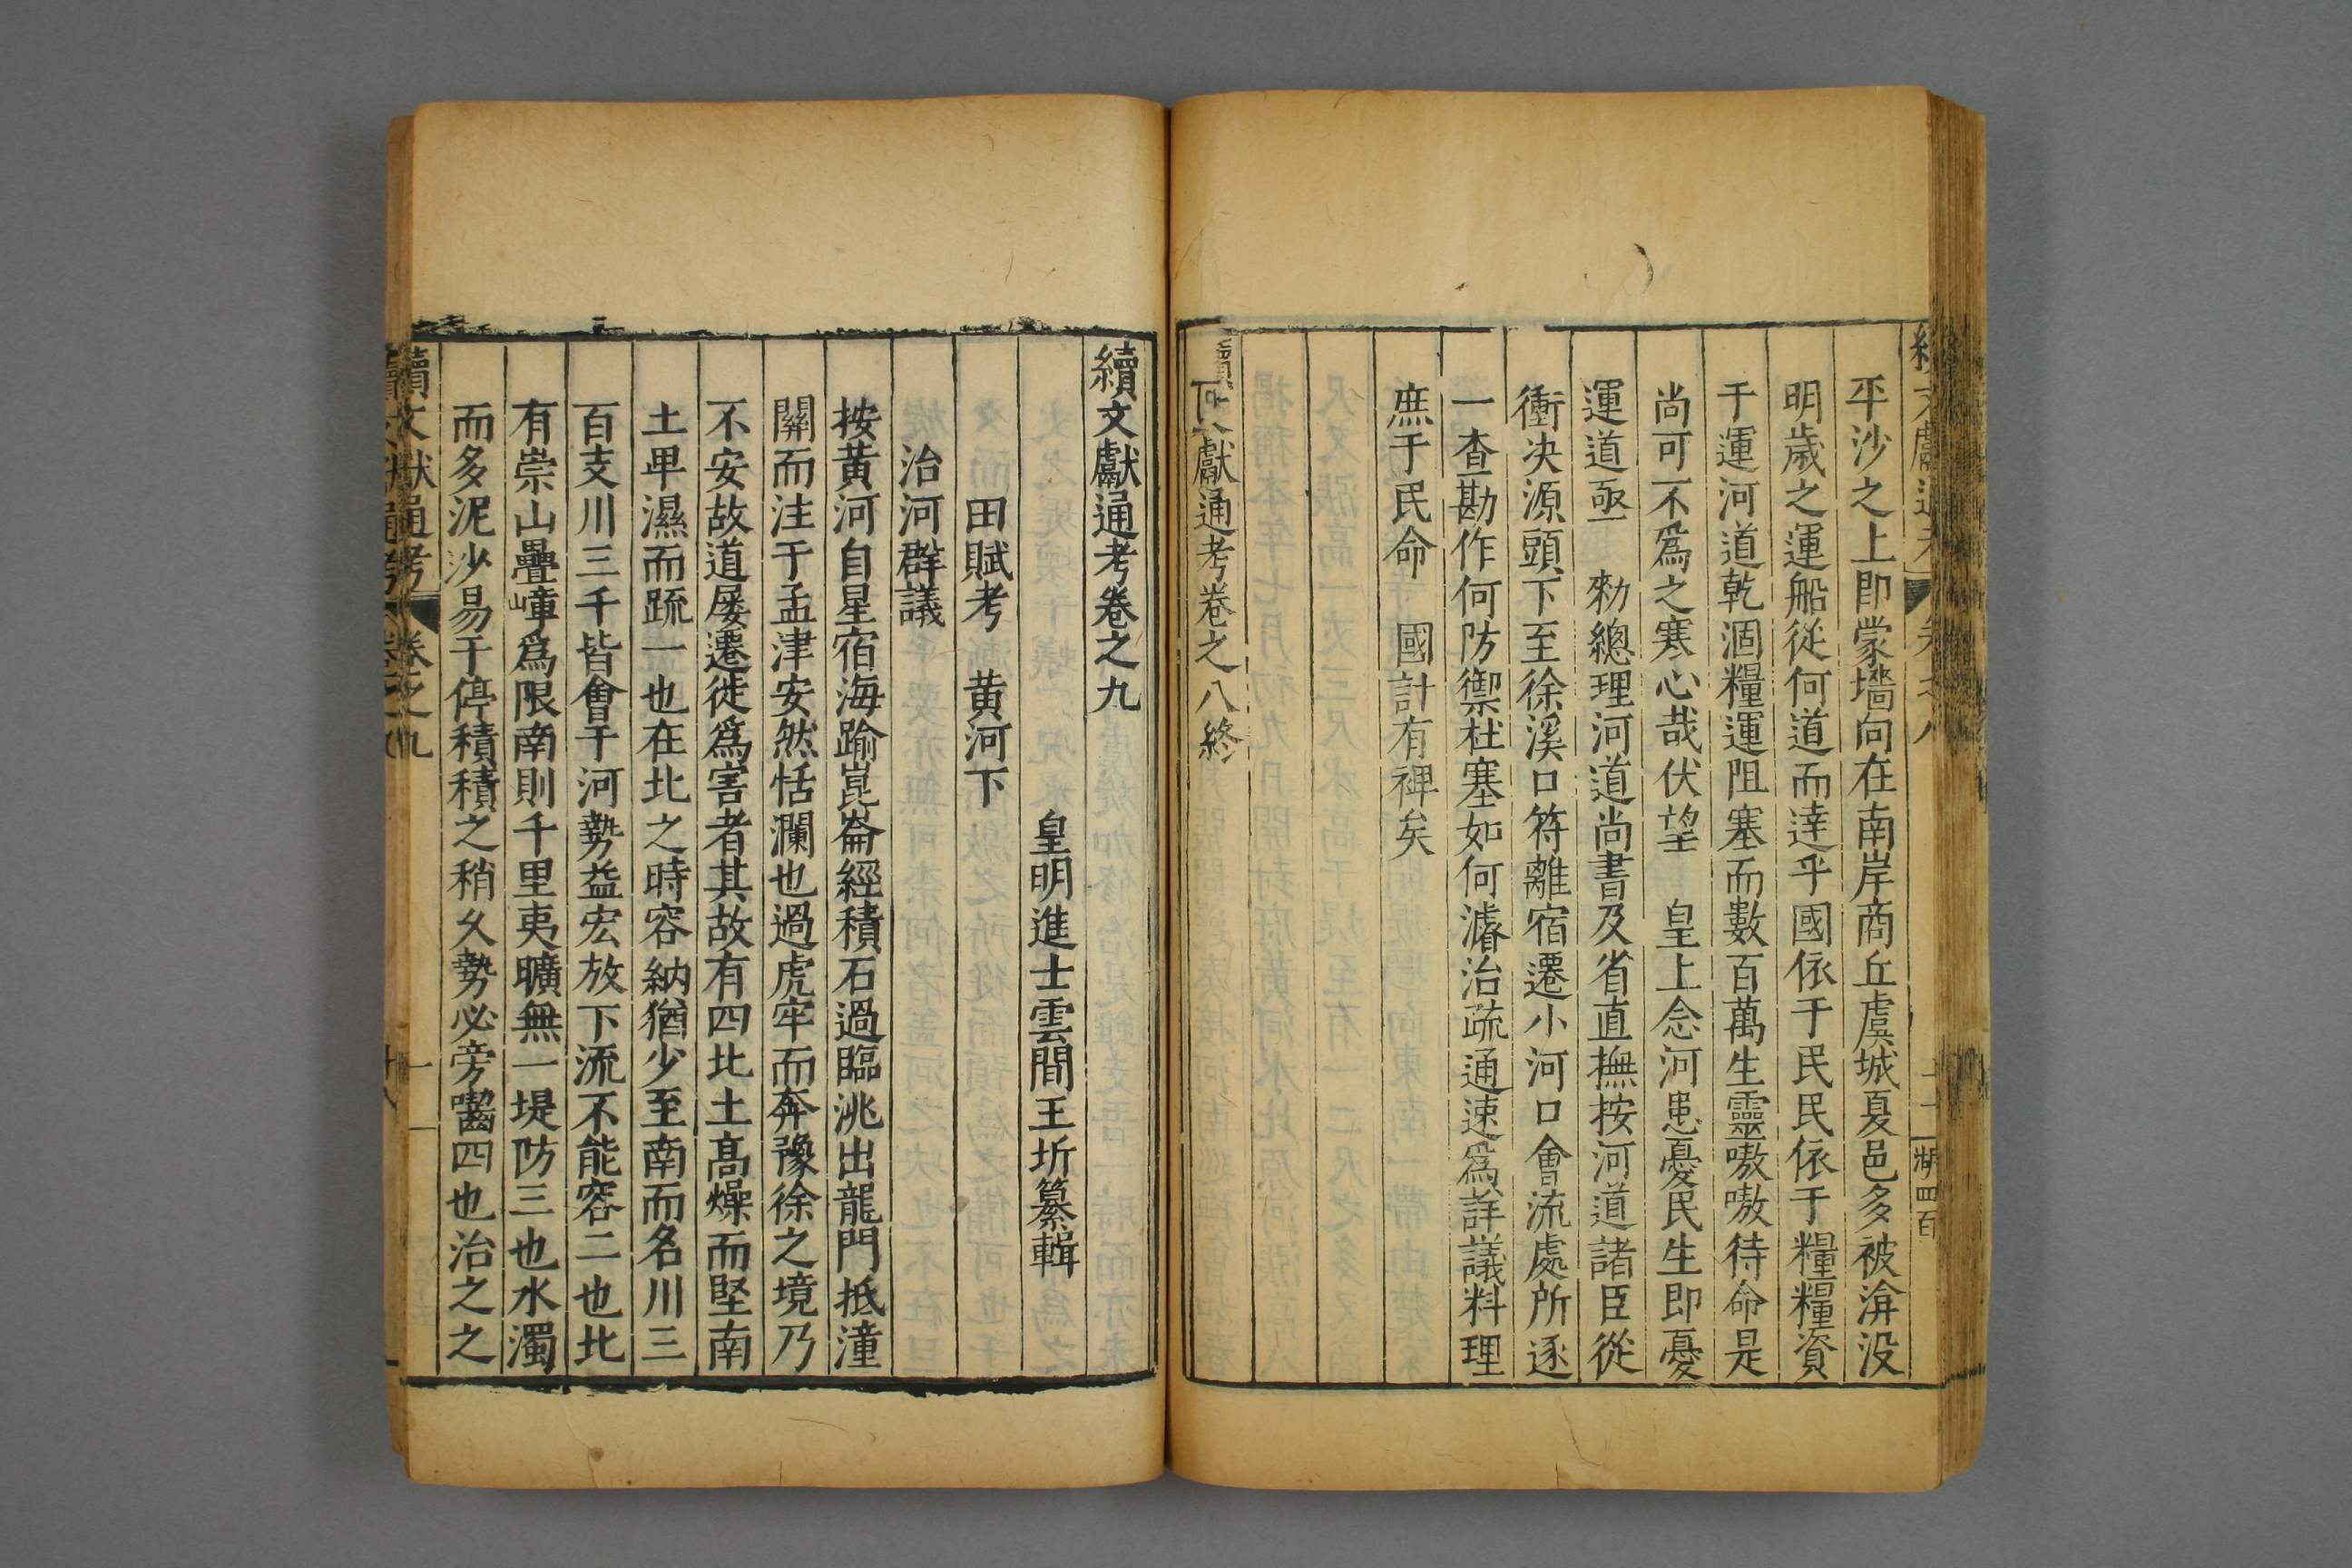 平沙之上即蒙墻向在南岸商丘虞城夏邑多被渰没
明歲之運船從何道而達乎國依于民民依于糧糧資
于運河道乾涸糧運阻塞而數百萬生靈嗷嗷待命是
尚可不爲之寒心哉伏望 皇上念河患憂民生即憂
運道亟 勑總理河道尚書及省直撫按河道諸臣從
衝决源頭下至徐溪口符離宿遷小河口會流處所逐
一查勘作何防禦杜塞如何濬治疏通速爲詳議料理
庶于民命 國計有裨矣
獻通考卷之八終
續文獻通考卷之九
皇明進士雲間王圻纂輯
田賦考 黄河下
治河群議
按黄河自星宿海踰崑崙經積石過臨洮出龍門抵潼
關而注于孟津安然恬瀾也過虎牢而奔豫徐之境乃
不安故道屡遷徙爲害者其故有四北土髙燥而堅南
土卑濕而疏一也在北之時容納猶少至南而名川三
百支川三千皆會于河勢益宏放下流不能容二也北
有崇山疊嶂爲限南則千里夷曠無一堤防三也水濁
而多泥沙易于停積積之稍久勢必旁囓四也治之之
續文獻通考 卷之九 一